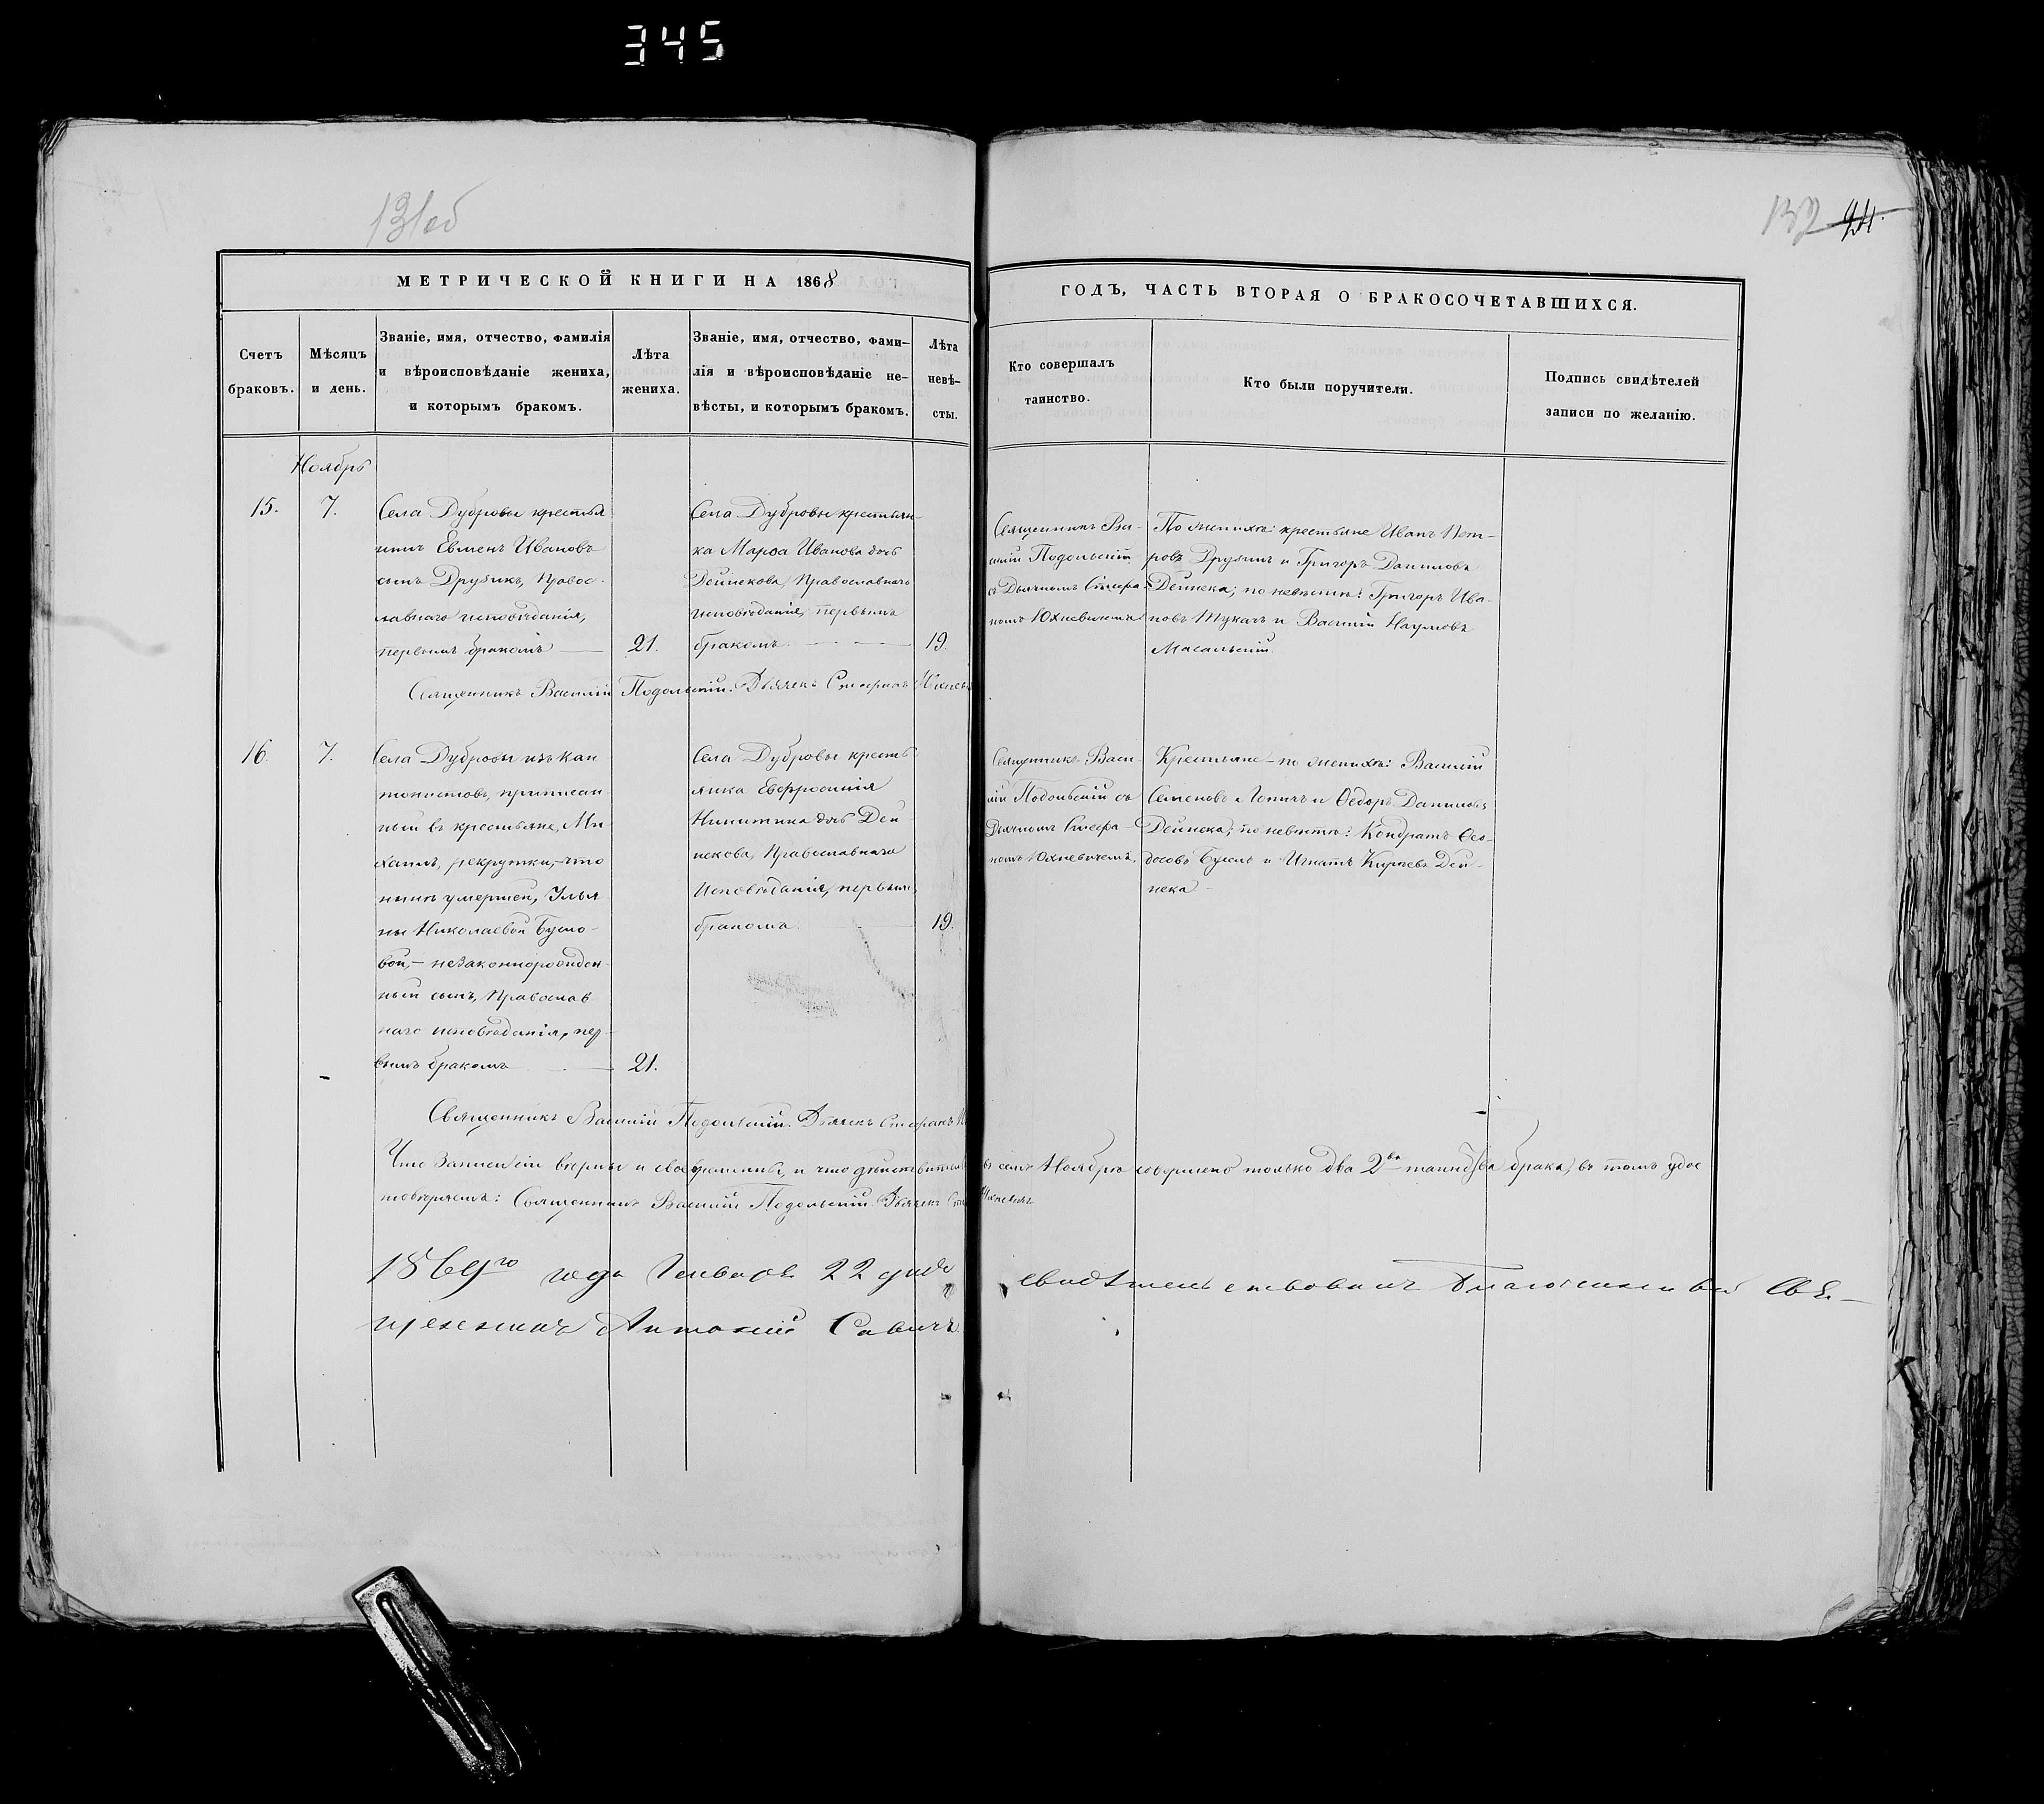 345
131об
132 94
МЕТРИЧЕСКОЙ КНИГИ НА 1868
ГОДЪ, ЧАСТЬ ВТОРАЯ О БРАКОСОЧЕТАВШИХСЯ.
Счетъ
браковъ.
Мѣсяцъ
и день.
Званіе, имя, отчество, фамилія
и вѣроисповѣданіе жениха,
и которымъ бракомъ.
Лѣта
жениха.
Званіе, имя, отчество, фами-
лія и вѣроисповѣданіе не-
вѣсты, и которымъ бракомъ.
Лѣта
невѣ-
сты.
Кто совершалъ
таинство.
Кто были поручители.
Подпись свидѣтелей
записи по желанію.
Ноябрь
15.
7.
Села Дубровы крестья
нинъ Евменъ Ивановъ
сынъ Друзикъ, Правос
лавнаго исповѣданія,
первымъ бракомъ
21.
Села Дубровы крестьян-
ка Марѳа Иванова дочь
Дейнекова, Православнаго
исповѣданія, первымъ
бракомъ
19.
Священникъ Ва-
силій Подольскій
съ Дьячкомъ Стефа-
номъ Юхневичемъ
По женихѣ: крестьяне Иванъ Пет-
ровъ и Григоръ Даниловъ
Дейнека; по невѣстѣ: Григоръ Ива-
новъ и Василій Наумовъ
Масальскій.
Священникъ Василій Подольскій. Дьячекъ Стефанъ
16.
7.
Села Дубровы изъ кан
тонистовъ, приписан
ный въ крестьяне, Ми
хаилъ, рекрутки, что
нынѣ умершей, Улья
ны Николаевой Бусло-
вой, - незаконнорожден
ный сынъ, Православ
наго исповѣданія, пер-
вымъ бракомъ
21.
Села Дубровы кресть
янка Евфросинія
Никитина дочь Дей
некова, Православнаго
Исповѣданія, первымъ
бракомъ.
19.
Священникъ Васи-
лій Подольскій съ
Дьячкомъ Стефа-
номъ Юхневичемъ.
Крестьяне - по женихѣ: Василій
Семеновъ и Ѳедоръ Даниловъ
Дейнека; по невѣстѣ: Кондратъ Ѳео-
досовъ и Игнатъ Дей-
нека
Священникъ Василій Подольскій. Дьячекъ Стефанъ
Что записи сіи вѣрны и и что дѣйствительно въ семъ Ноябрѣ совершено только два 2ва таинства брака, въ томъ удос
товѣряемъ: Священникъ Василій Подольскій. Дьячекъ Юхневичъ
1869го года Генваря 22 дня свидѣтельствовалъ Благочинный Свя-
щенникъ Антоній Савичъ.